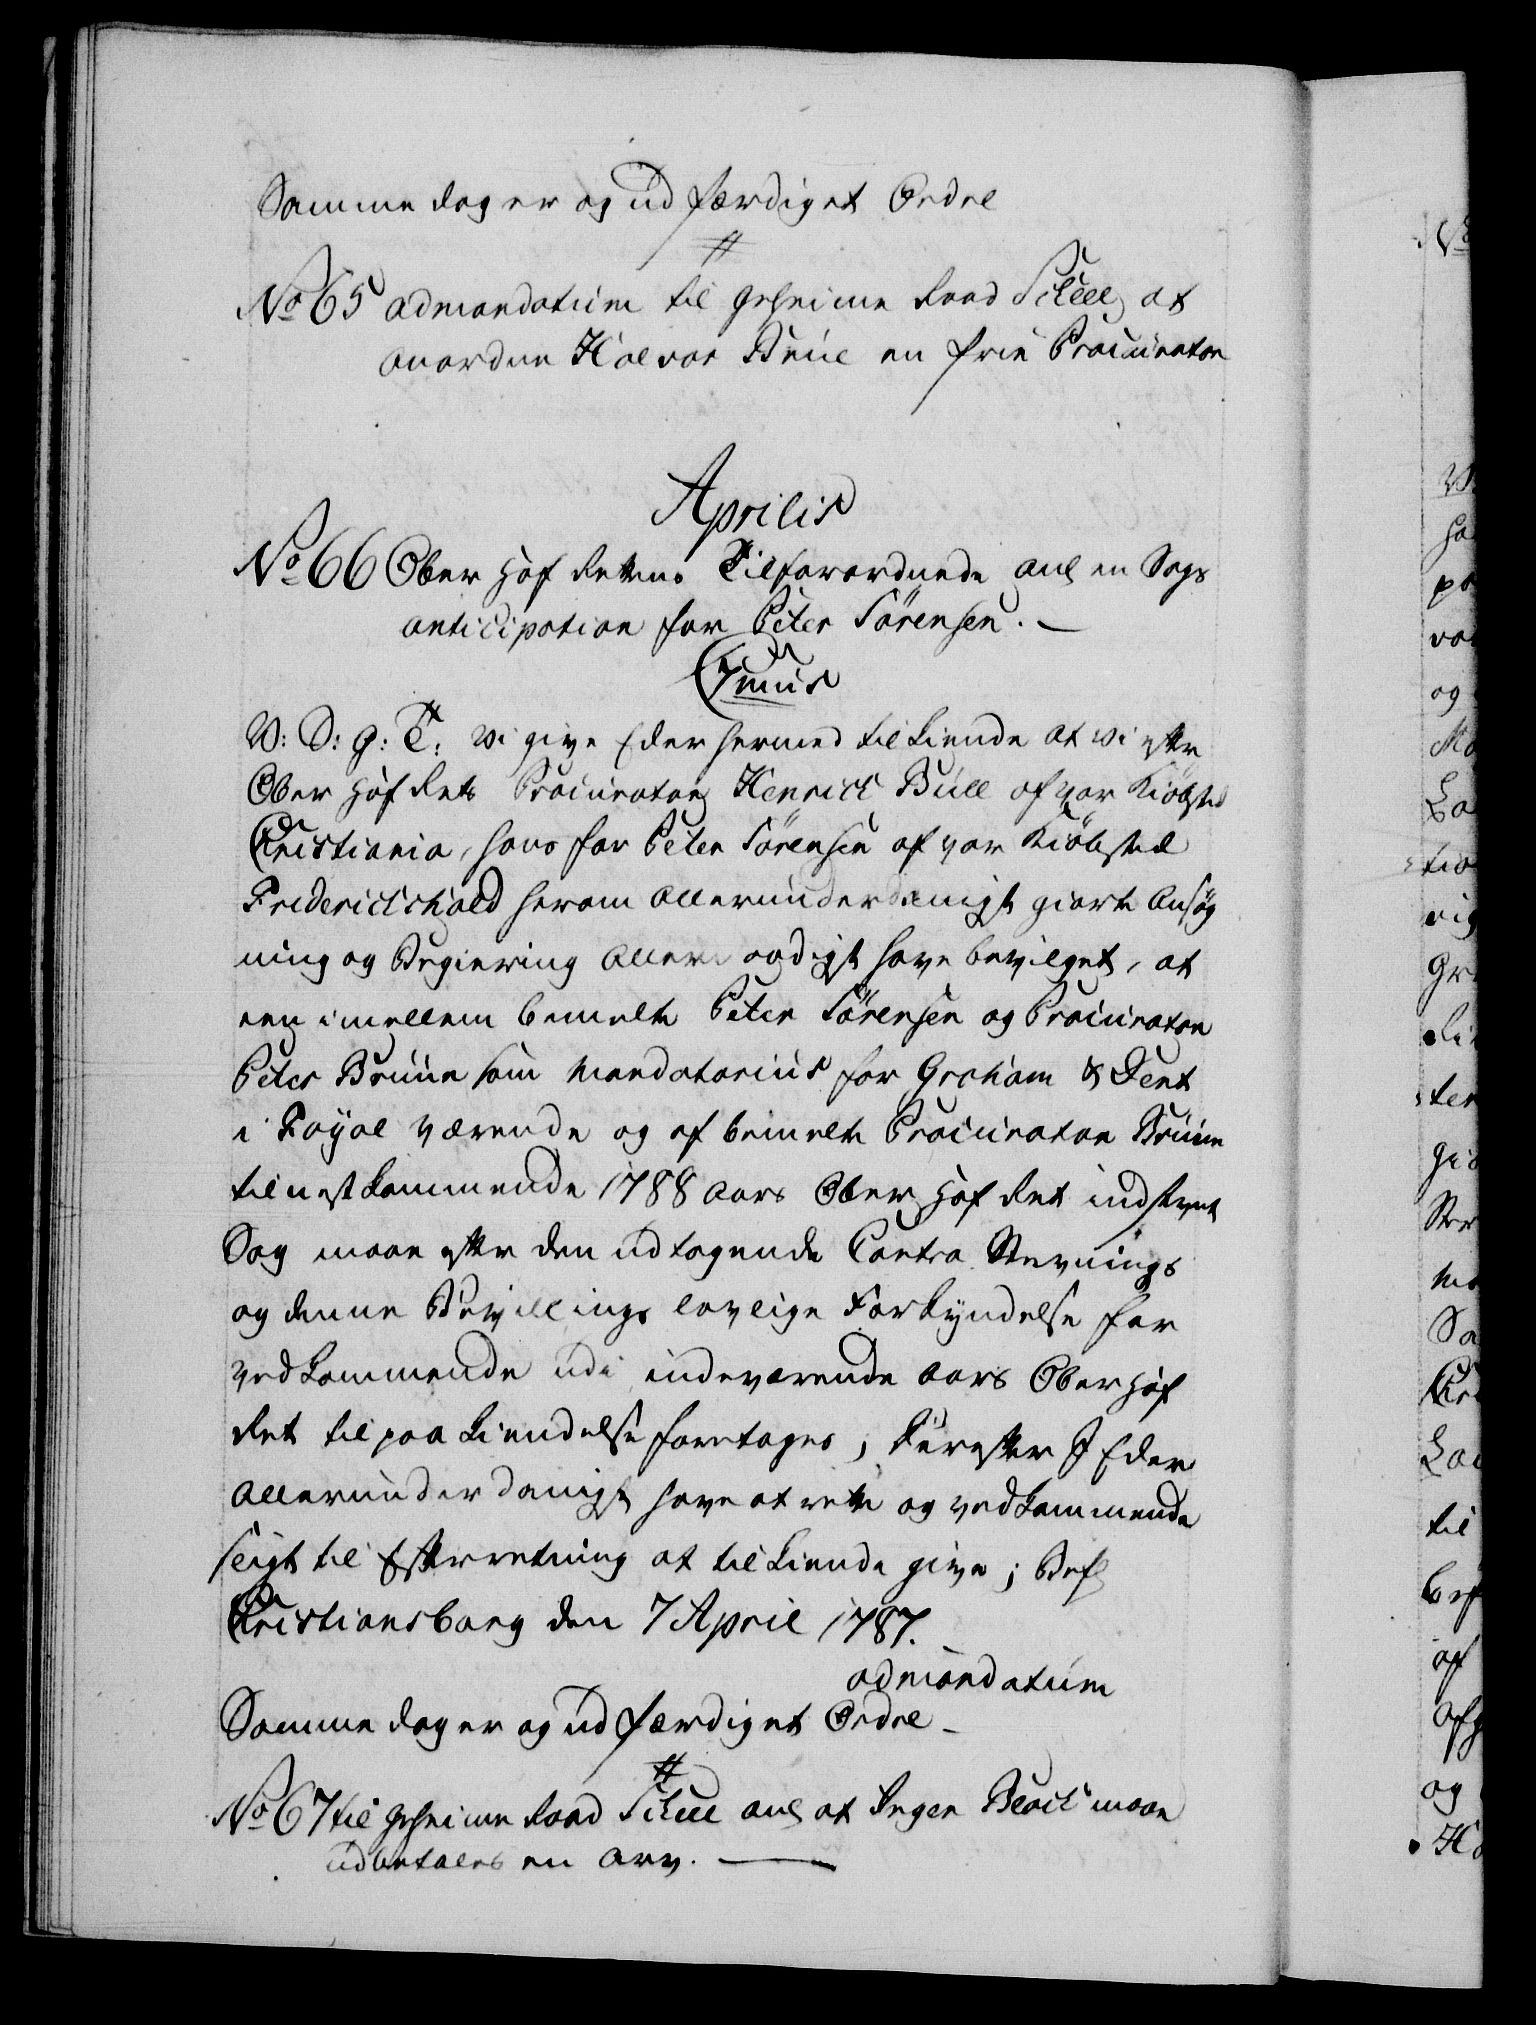 Samme dag er og udfærdiget Ordre
#
No 65 admandatum til geheime Raad Scheel at
anordne Halvor Brue en frie Procurator
Aprilis
No 66 Ober Hof Rettens Tilforordnede ang en Sags
anticipation for Peter Sörensen. —
7mus
V: S: G: T: Vi give Eder hermed tilkiende at vi efter
Ober Hof Rets Procurator Henrich Bull af vor Kiöbsted
Christiania, hans for Peter Sörensen af vor Kiöbsted
Friderichshald herom allerunderdanigst giorte Ansög
ning og Begiering allernaadigst have bevilget, at
een imellem bemelte Peter Sörensen og Procurator
Peter Bruun som Mandatarius for Graham & Dent
i Fayal værende og af bemelte Procurator Bruun
til nestkommende 1788 Aars Ober Hof Ret indstevnt
Sag maae efter den udtagende Contra Stevnings
og denne Bevillings lovlige Forkyndelse for
vedkommende udi indeværende Aars Ober Hof
Ret til paakiendelse foretages; Derefter I Eder
allerunderdanigst have at rette og vedkommende
sligt til Efterretning at tilkiende give; Bef
Christiansborg den 7 April 1787.
admandatum
Samme dag er og udfærdiget Ordre –
#
No 67 til geheime Raad Scheel ang at Inger Block maae
udbetales en Arv. —